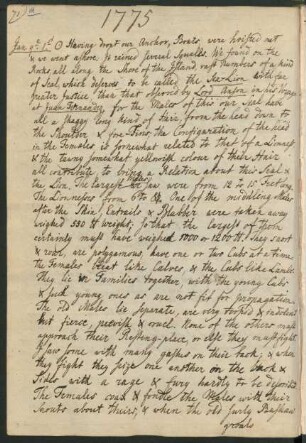 1775
Jany. 1st. ☉ Having dropt our Anchor, Boats were hoisted out
& we went ashore, to several Squalls. We found on the
Rocks all along the Shore of the Island, vast Numbers of a kind
of Seal, which deserves to be called the Sea-Lion with far
greater Justice than that described by Lord Anson in his Voyage
at Juan Fernandez, for the Males of this our Seal have
all a shaggy long kind of Hair, from the head down to
the Shoulder & fore Fins; the Configuration of the head
in the Females is somewhat related to that of a Lioness
& the tawny somewhat yellowish colour of their Hair
all contribute to bring a Relation about this Seal &
the Lion. The largest we saw were from 12 to 15 Feet long.
The Lionesses from 6 to 8. One of the middling Males
after the Skin, Entrails & Blubber were taken away
weighed 550 lb weight; so that the largest of them
certainly must have weighed 1000 or 1200 lb. They snort
& roar, are polygamous, have one or two Cubs at a time
the Females bleat like Calves & the Cubs like Lambs.
They lie in Families together, with the young Cubs
& such young ones as are not fit for propagation.
The old Males lie separate, are very torpid & indolent
but fierce, peevish & cruel. None of the others must
approach their Resting-place, or else they must fight
I saw some with many gashes on their back, & when
they fight they seize one another on the Back &
Sides with a rage & fury hardly to be depicted
The Females court & fondle the Males with their
Snouts about theirs, & when the old surly Bashaw
growls